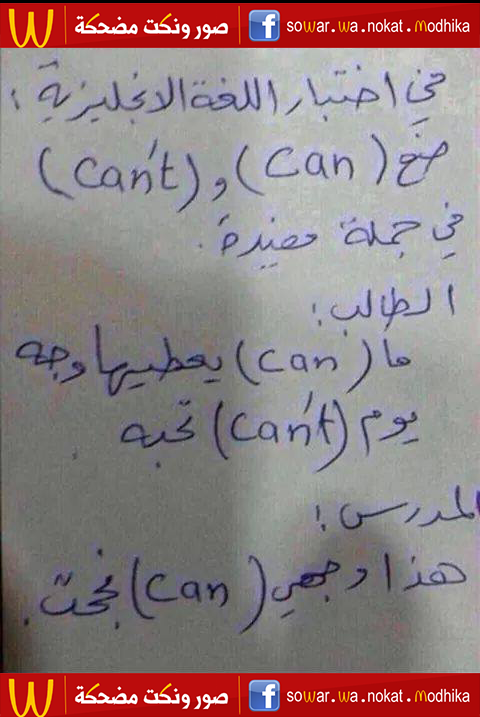 صور ونكت مضحكة sowar.wa.nokat.Modhika
في اختبار اللغة الانجليزية :
ضع (Can) و (Can't)
في جملة مفيدة .
الطالب :
ما (Can) يعطيها وجه
يوم (Can't) تحبه .
المدرس :
هذا وجهي (Can) نجحت .
صور ونكت مضحكة sowar.wa.nokat.Modhika